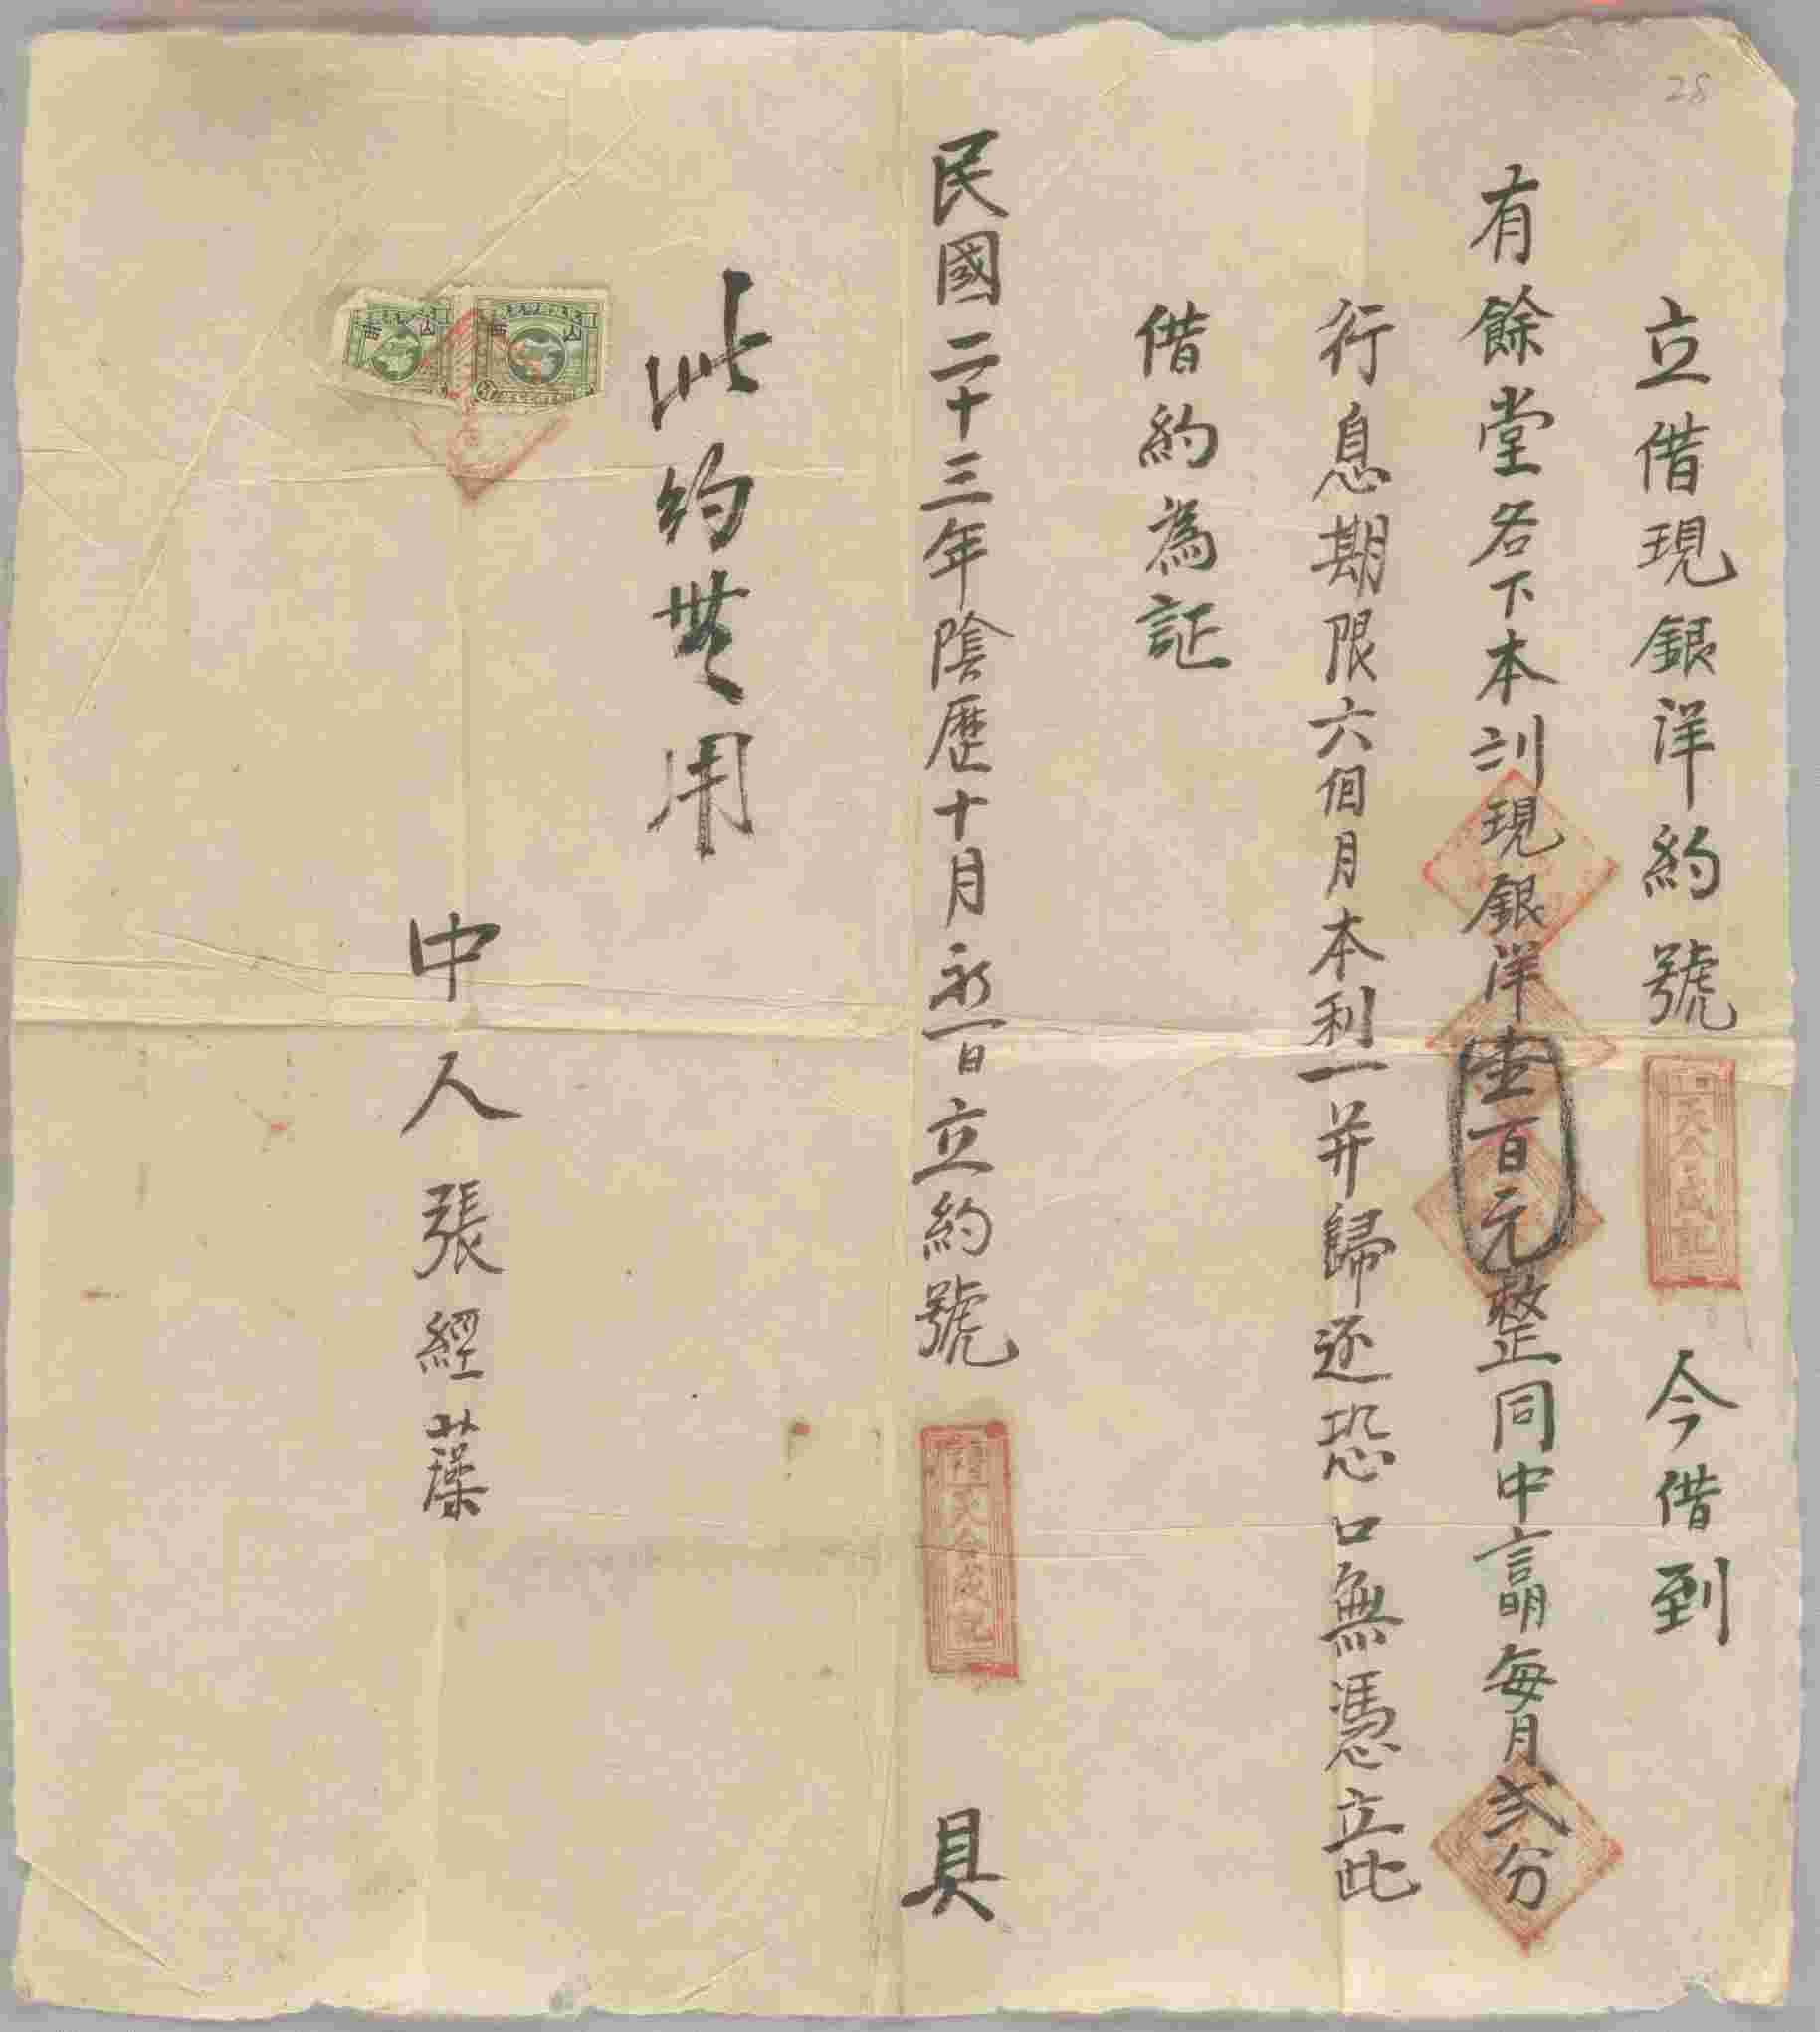 28
立借現銀洋約號 天合成記 今借到
有餘堂名下本訓現銀洋壹百元整同中言明每月弍分
行息期限六個月本利一并歸还恐口無憑立此
借約為証
民國二十三年陰歷十月初一日立約號 天合成記 具
此約無用
山西
山西
中人張經藻